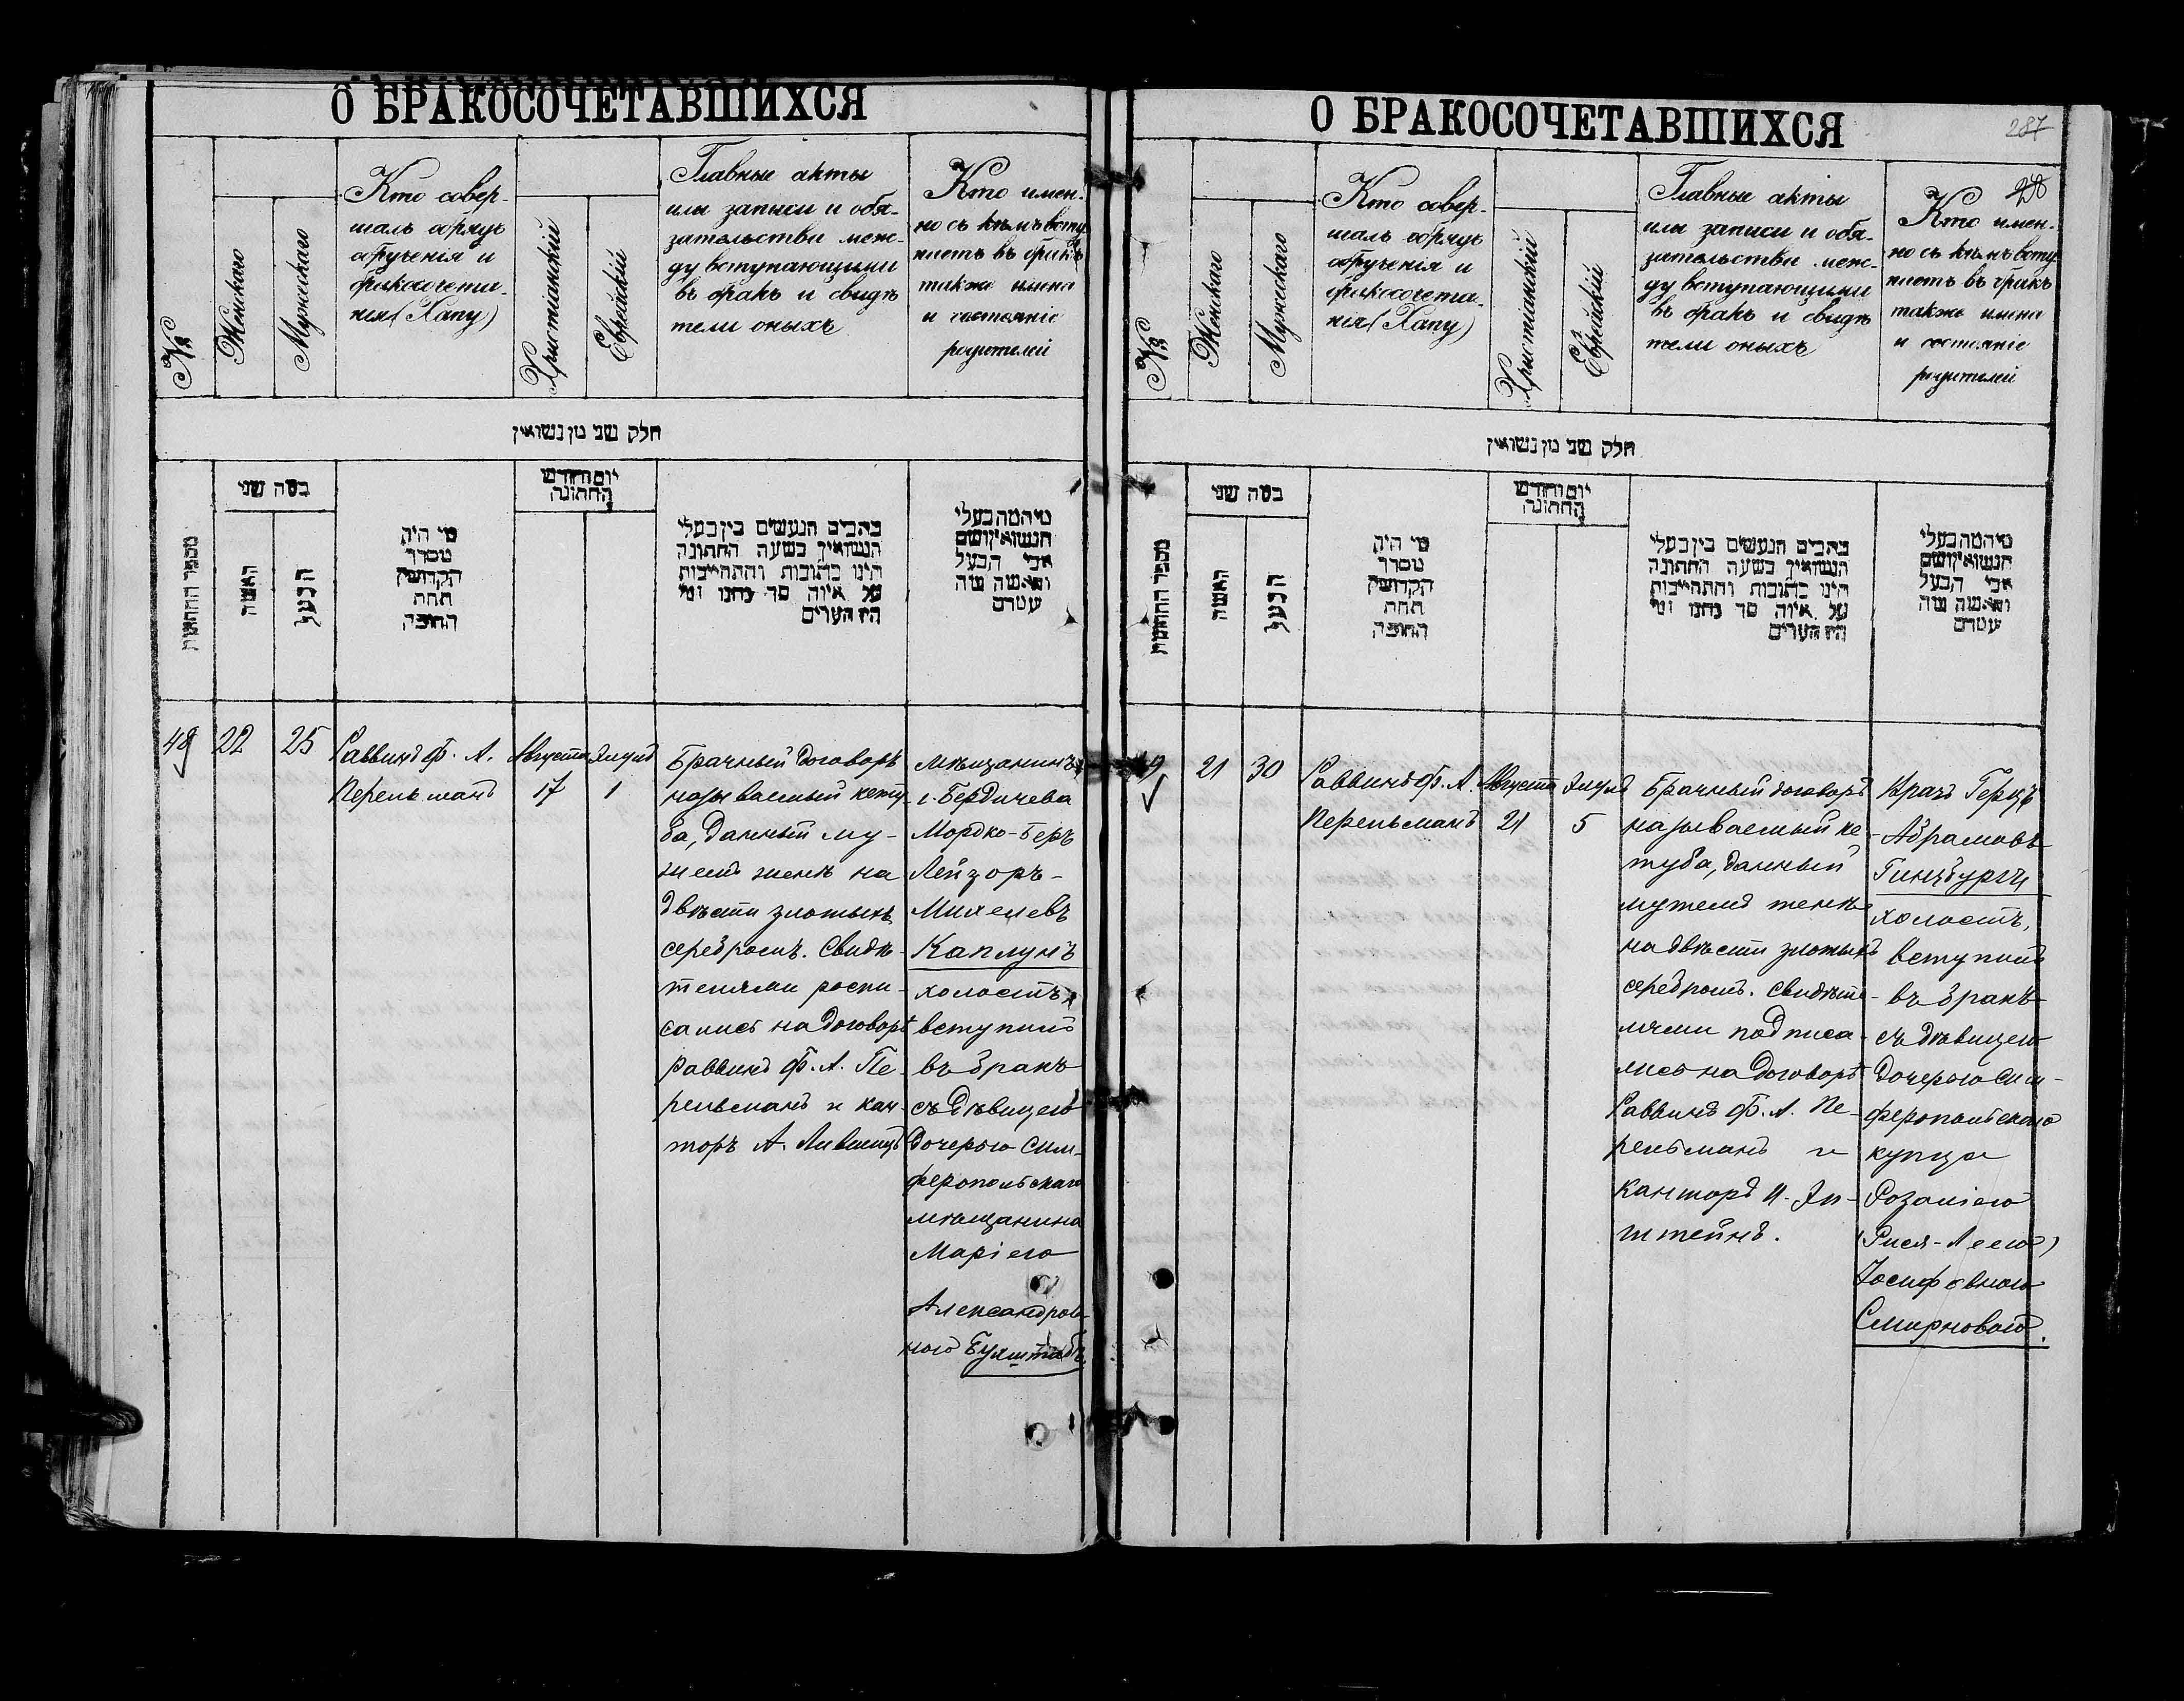 О БРАКОСОЧЕТАВШИХСЯ
№
Женскаго
Мужескаго
Кто совер-
шалъ обрядъ
обрученія и
бракосочета-
нія (Хапу)
Христіанскій
Еврейскій
Главные акты
или записи и обя-
зательства меж-
ду вступающими
въ бракъ и свидѣ
тели оныхъ
Кто имен-
но съ кѣмъ всту
паетъ въ бракъ
также имена
и состояніе
родителей
חלק שני מן נשואין
מספר החתונות
כמה שני
האשה
הבעל
מי היה
מסדר
הקדושין
תחת
החופה
יום וחודש
החתונה
כתבים הנעשים בין בעלי
הנשואין בשעה החתונה
היינו כתובות והתחייבות
על איזה סך נתנו ומי
היו העדים
מי המה בעלי
הנשואין ושם
אבי הבעל
והאשה ומה
עמדם
48
22
25
Раввинъ Ф. А.
Перельманъ
Августа
17
Элулъ
1
Брачный договоръ
называемый кету-
ба, данный му-
жемъ женѣ на
двѣсти злотыхъ
серебромъ. Свидѣ-
телями роспи-
сались на договорѣ
раввинъ Ф. А. Пе-
рельманъ и кан-
торъ А. Лившицъ
Мѣщанинъ
г. Бердичева
Мордко-Беръ
Лейзоръ-
Михелевъ
Каплунъ
холостъ,
вступилъ
въ бракъ
съ дѣвицею
дочерью Сим-
феропольскаго
мѣщанина
Маріею
Александров-
ною
О БРАКОСОЧЕТАВШИХСЯ
287
№
Женскаго
Мужескаго
Кто совер-
шалъ обрядъ
обрученія и
бракосочета-
нія (Хапу)
Христіанскій
Еврейскій
Главные акты
или записи и обя-
зательства меж-
ду вступающими
въ бракъ и свидѣ
тели оныхъ
Кто имен-
но съ кѣмъ всту
паетъ въ бракъ
также имена
и состояніе
родителей
חלק שני מן נשואין
מספר החתונות
כמה שני
האשה
הבעל
מי היה
מסדר
הקדושין
תחת
החופה
יום וחודש
החתונה
כתבים הנעשים בין בעלי
הנשואין בשעה החתונה
היינו כתובות והתחייבות
על איזה סך נתנו ומי
היו העדים
מי המה בעלי
הנשואין ושם
אבי הבעל
והאשה ומה
עמדם
21
30
Раввинъ Ф. А.
Перельманъ
Августа
21
Элулъ
5
Брачный договоръ
называемый ке-
туба, данный
мужемъ женѣ
на двѣсти злотыхъ
серебромъ. Свидѣте-
лями подписа-
лись на договорѣ
Раввинъ Ф. А. Пе-
рельманъ и
канторъ И. Эп-
штейнъ.
Врачъ Герцъ
Абрамовъ
Гинцбургъ
холостъ,
вступилъ
въ бракъ
съ дѣвицею
дочерью Сим-
феропольскаго
купца
Розаліею
(Рися-Леею)
Іосифовною
Смирновой.